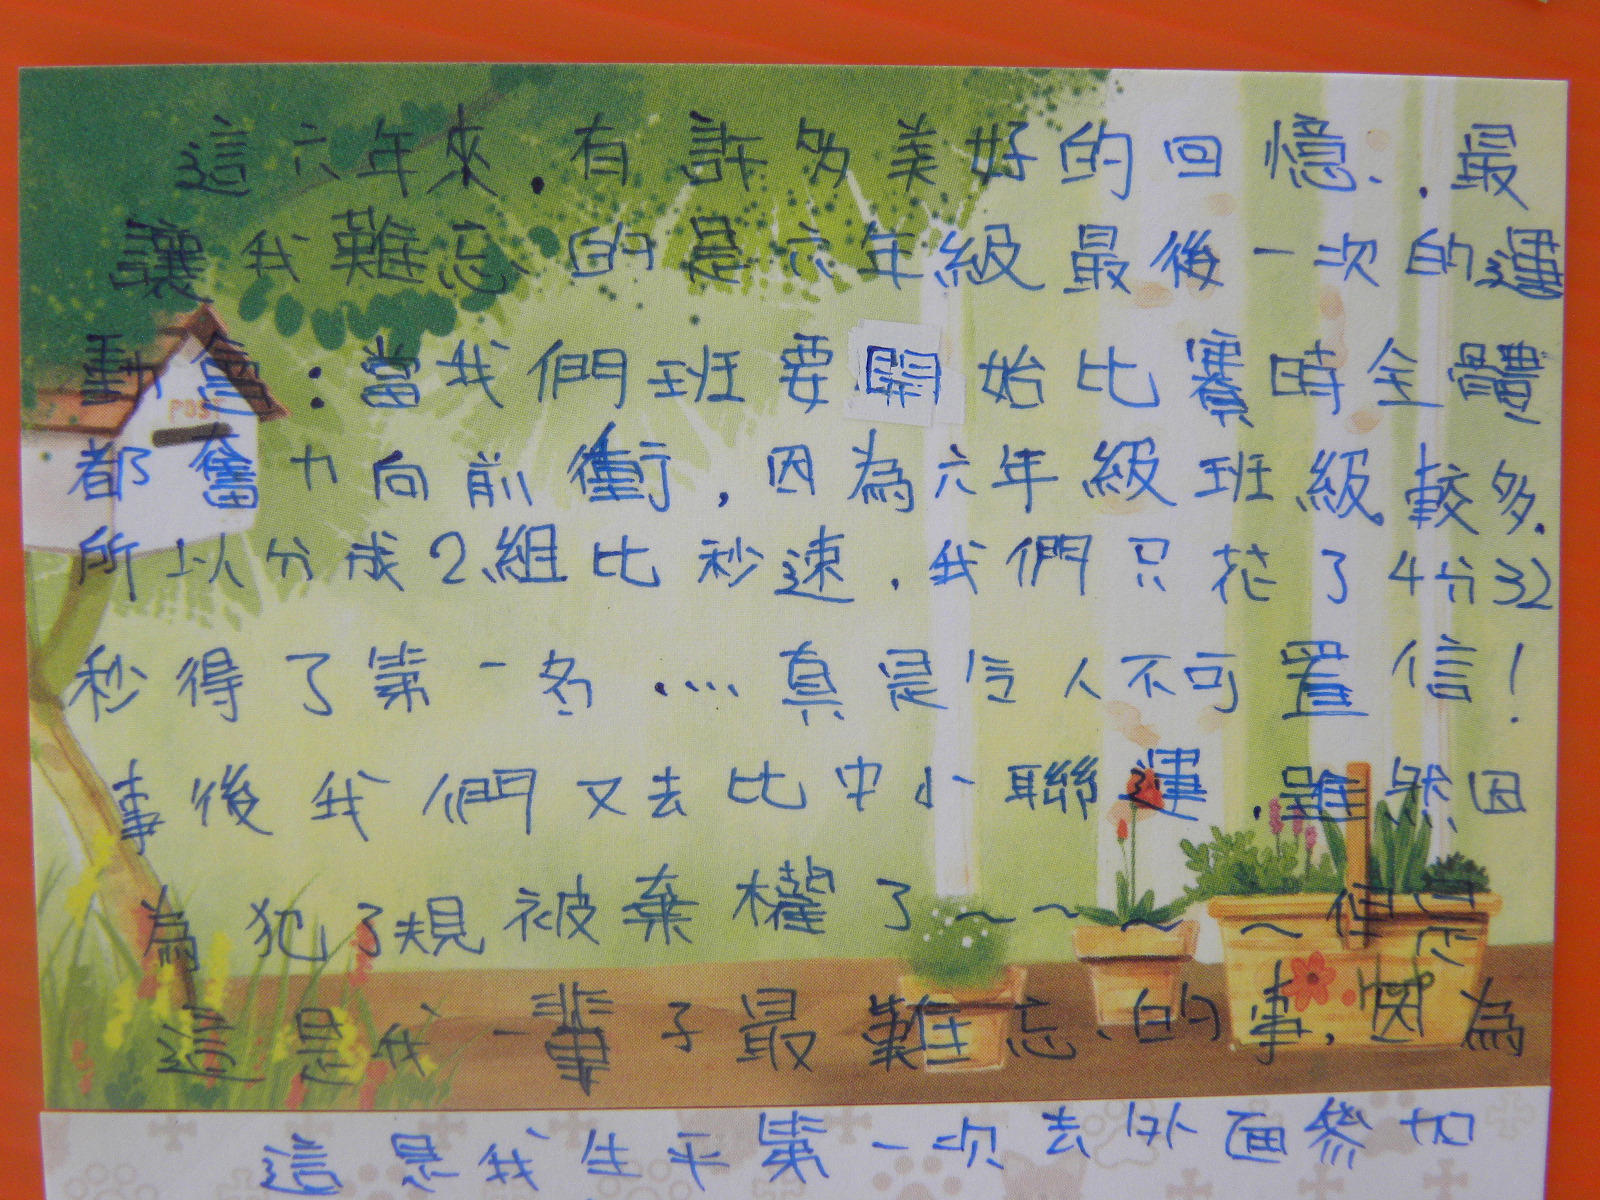 這六年來.有許多美好的回憶..最
讓我難忘的是六年級最後一次的運
動會:當我們班要開始比賽時全體
POST
都奮力向前衝,因為六年級班級較多.
所以分成2組比秒速.我們只花了4分32
秒得了第一名....真是令人不可置信!
事後我們又去比中小聯運.雖然因
為犯了規被棄權了~~~~~但是
這是我一輩子最難忘的事.因為
這是我生平第一次去外面參加